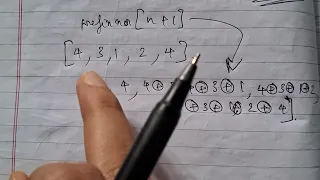 prefixxor [n+1]
[4, 3, 1, 2, 4]
4, 4⊕ 4⊕3⊕1, 4⊕3⊕1⊕2,
⊕3⊕1⊕2⊕4]